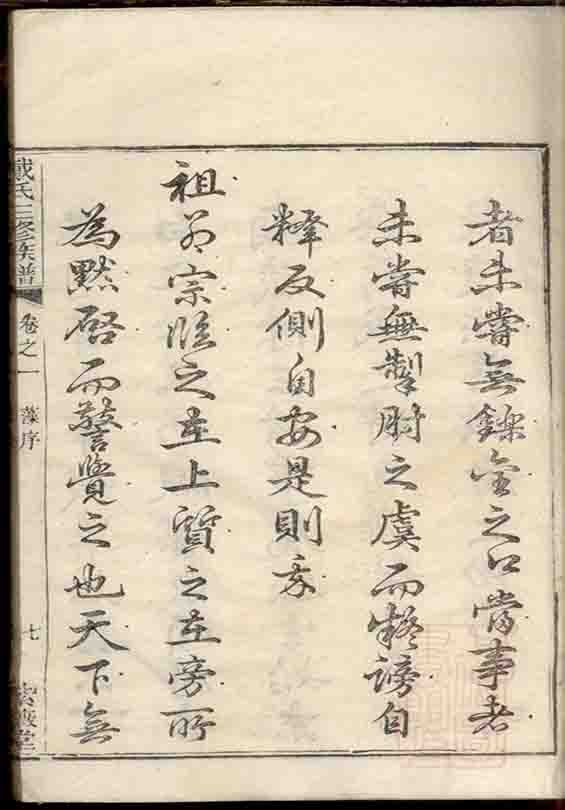 者未嘗無鑠金之口當事者
未嘗無製肘之虞而疑謗自
釋反側自安是則我
祖若宗臨之在上質之在旁所
為黙啓而警覺之也天下無
戴氏三修族譜
卷之一
藻序
七
堂